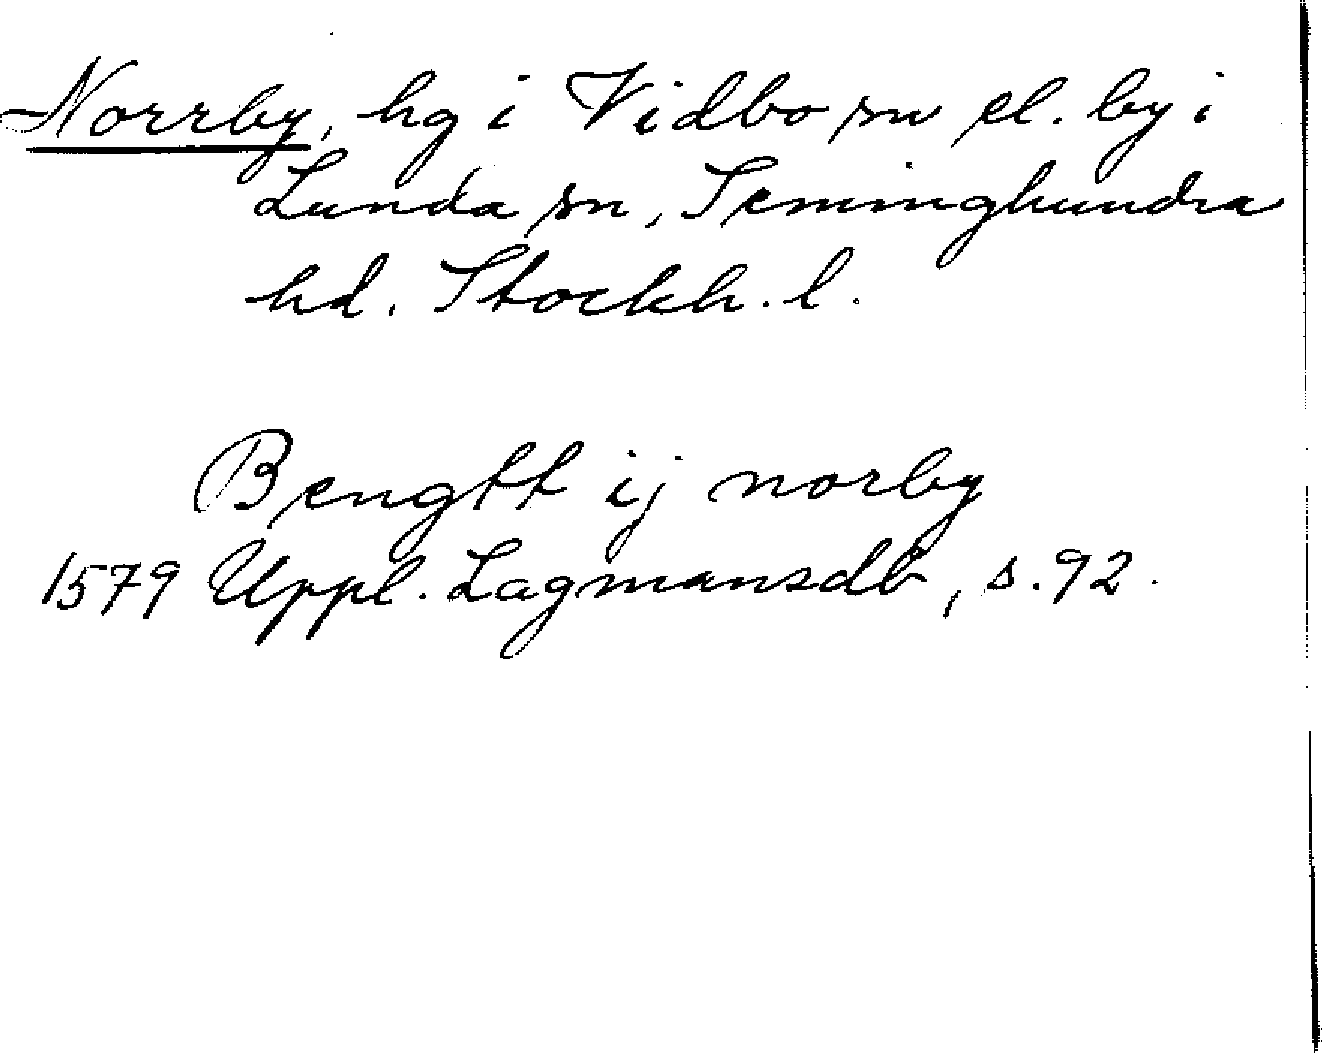 Norrby, hg i Vidbo sn el. by i
Lunda sn, Seminghundra
hd. Stockh. l.
Bengtt ij norby
1579 Uppl. Lagmansdb, s. 92.